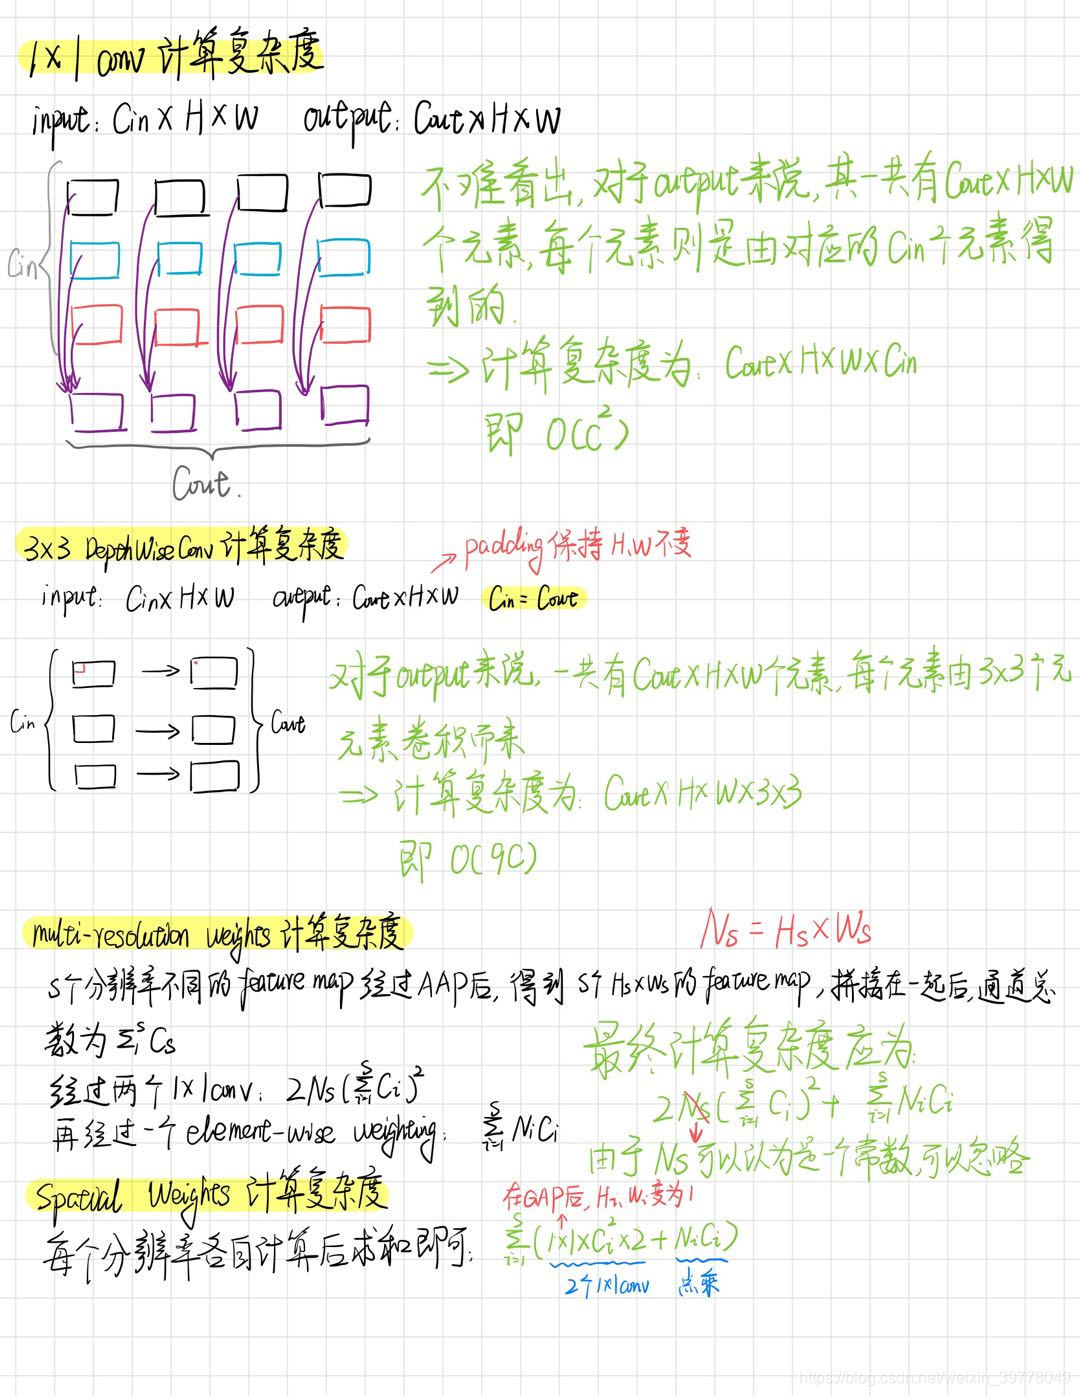 1×1 conv 计算复杂度
input: Cin×H×W output: Cout×H×W
不难看出,对于output来说,其一共有Cout×H×W
个元素,每个元素则是由对应的Cin个元素得
到的.
⇒ 计算复杂度为: Cout×H×W×Cin
即 O(C²)
Cin
Cout.
3×3 DepthWiseConv 计算复杂度
→ padding保持 H,W不变
input: Cin×H×W output: Cout×H×W Cin = Cout
Cin
Cout
对于output来说, 一共有Cout×H×W个元素,每个元素由3×3个元
元素卷积而来
⇒ 计算复杂度为: Cout×H×W×3×3
即 O(9C)
multi-resolution weights 计算复杂度
Ns = Hs×Ws
S个分辨率不同的feature map 经过AAP后, 得到 S个 Hs×Ws的feature map, 拼接在一起后,通道总
数为 Σ₁ˢCs
经过两个1×1conv: 2Ns(Σᵢ₌₁ˢCi)²
再经过一个element-wise weighting: Σᵢ₌₁ˢ NiCi
最终计算复杂度应为:
2Ns(Σᵢ₌₁ˢ Ci)² + Σᵢ₌₁ˢ NiCi
由于 Ns 可以认为是一个常数,可以忽略
Spatial Weights 计算复杂度
在GAP后, Hi, Wi变为1
每个分辨率各自计算后求和即可: Σᵢ₌₁ˢ(1×1×Ci²×2+NiCi)
2个1×1conv 点乘
https://blog.csdn.net/weixin_39778049